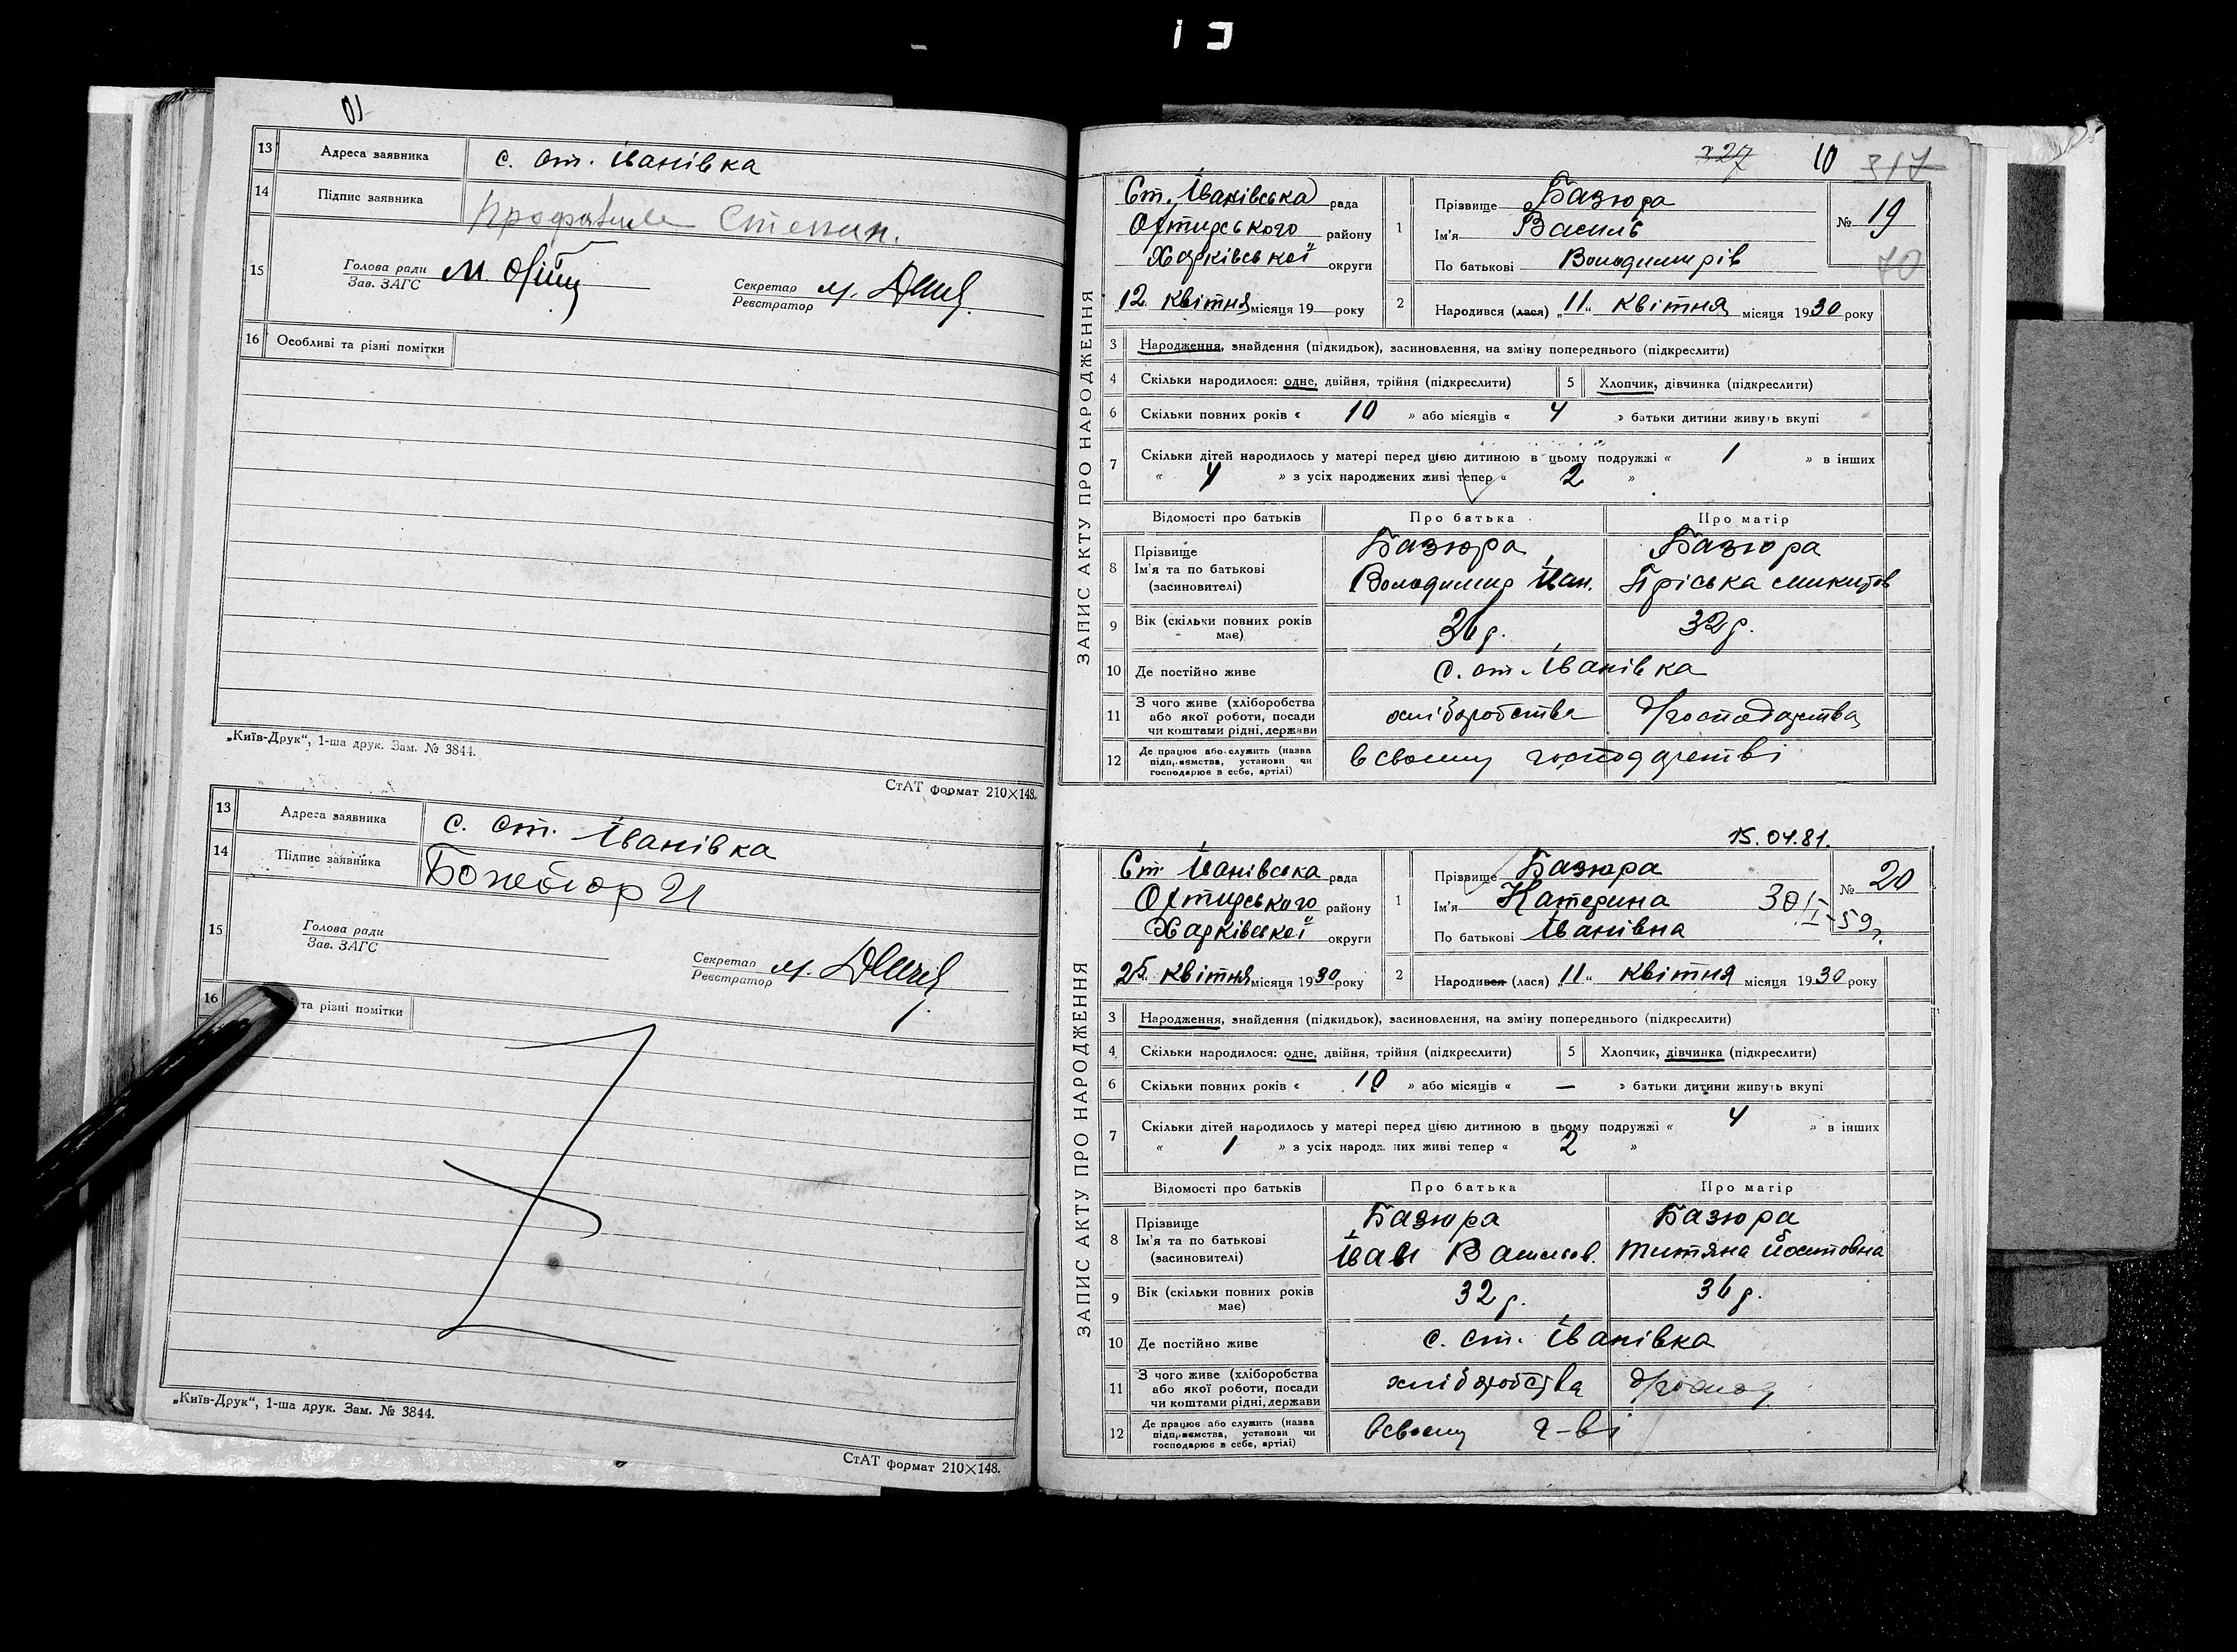 13 Адреса заявника с. ст. Іванівка
14 Підпис заявника Степан.
15 Голова ради Зав. ЗАГС М.
Секретар Реєстратор М.
16 Особливі та різні помітки
„Київ-Друк“, 1-ша друк. Зам. № 3844.
СтАТ формат 210×148.
13 Адреса заявника с. ст. Іванівка
14 Підпис заявника
15 Голова ради Зав. ЗАГС
Секретар Реєстратор М.
16 та різні помітки
„Київ-Друк“, 1-ша друк. Зам. № 3844.
СтАТ формат 210×148.
327 10 317
ЗАПИС АКТУ ПРО НАРОДЖЕННЯ
Ст. Іванівська рада
Охтирського району
Харківської округи
12 квітня місяця 19 року
1 Прізвище Базюра
Ім'я Василь
По батькові Володимирів
№ 19
70
2 Народився (лася) „11“ квітня місяця 1930 року
3 Народження, знайдення (підкидьок), засиновлення, на зміну попереднього (підкреслити)
4 Скільки народилося: одне, двійня, трійня (підкреслити) 5 Хлопчик, дівчинка (підкреслити)
6 Скільки повних років « 10 » або місяців « 4 » батьки дитини живуть вкупі
7 Скільки дітей народилось у матері перед цією дитиною в цьому подружжі « 1 » в інших
« 4 » з усіх народжених живі тепер « 2 »
Відомості про батьків Про батька Про матір
8 Прізвище Базюра Базюра
Ім'я та по батькові Володимир Іван. Пріська Микитов
(засиновителі)
9 Вік (скільки повних років має) 36 р. 32 р.
10 Де постійно живе с. ст. Іванівка
11 З чого живе (хліборобства
або якої роботи, посади хліборобства господарства
чи коштами рідні, держави
12 Де працює або служить (назва
підприємства, установи чи в своєму господарстві
господарює в себе, артілі)
15.04.81.
ЗАПИС АКТУ ПРО НАРОДЖЕННЯ
Ст Іванівська рада
Охтирського району
Харківської округи
25 квітня місяця 1930 року
1 Прізвище Базюра
Ім'я Катерина
По батькові Іванівна
№ 20
59 р.
2 Народився (лася) „11“ квітня місяця 1930 року
3 Народження, знайдення (підкидьок), засиновлення, на зміну попереднього (підкреслити)
4 Скільки народилося: одне, двійня, трійня (підкреслити) 5 Хлопчик, дівчинка (підкреслити)
6 Скільки повних років « 10 » або місяців « — » батьки дитини живуть вкупі
7 Скільки дітей народилось у матері перед цією дитиною в цьому подружжі « 4 » в інших
« 1 » з усіх народж них живі тепер « 2 »
Відомості про батьків Про батька Про матір
8 Прізвище Базюра Базюра
Ім'я та по батькові Іван Васильов. Титяна Йостовна
(засиновителі)
9 Вік (скільки повних років має) 32 р. 36 р.
10 Де постійно живе с. ст. Іванівка
11 З чого живе (хліборобства
або якої роботи, посади хліборобства
чи коштами рідні, держави
12 Де працює або служить (назва
підприємства, установи чи в своєму г-ві
господарює в себе, артілі)